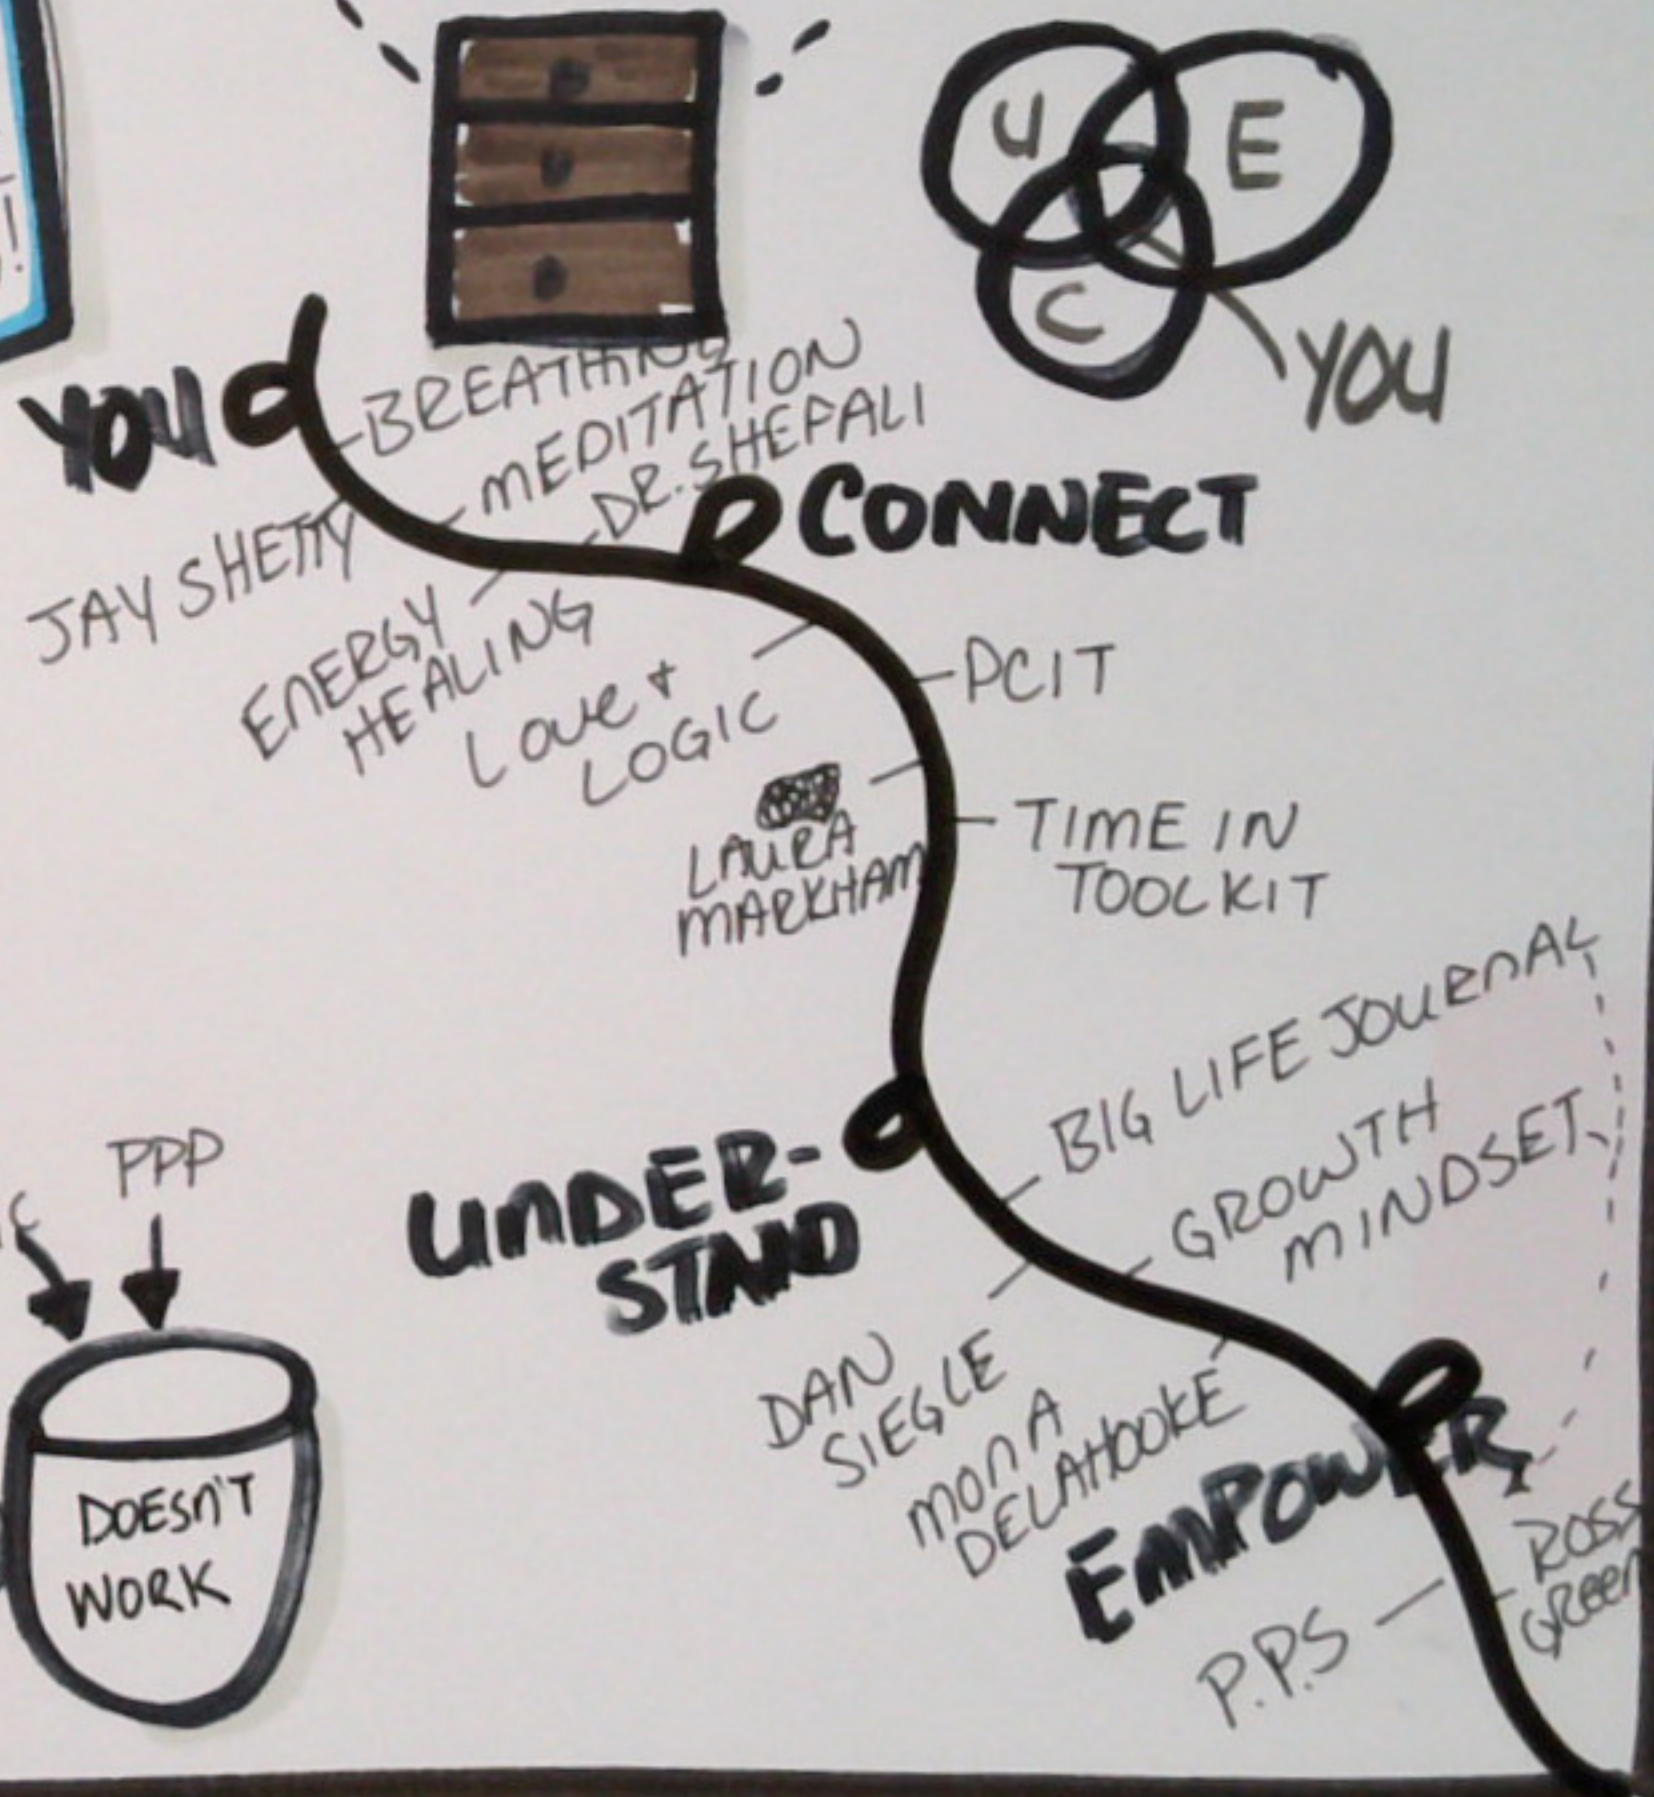 U
E
C
YOU
YOU
BREATHING
MEDITATION
DR. SHEFALI
JAY SHETTY
ENERGY
HEALING
CONNECT
LOVE +
LOGIC
PCIT
LAURA
MARKHAM
TIME IN
TOOLKIT
BIG LIFE JOURNAL
GROWTH
MINDSET
UNDER-
STAND
DAN
SIEGLE
MONA
DELAHOOKE
EMPOWER
ROSS
GREEN
P.P.S
PPP
DOESN'T
WORK